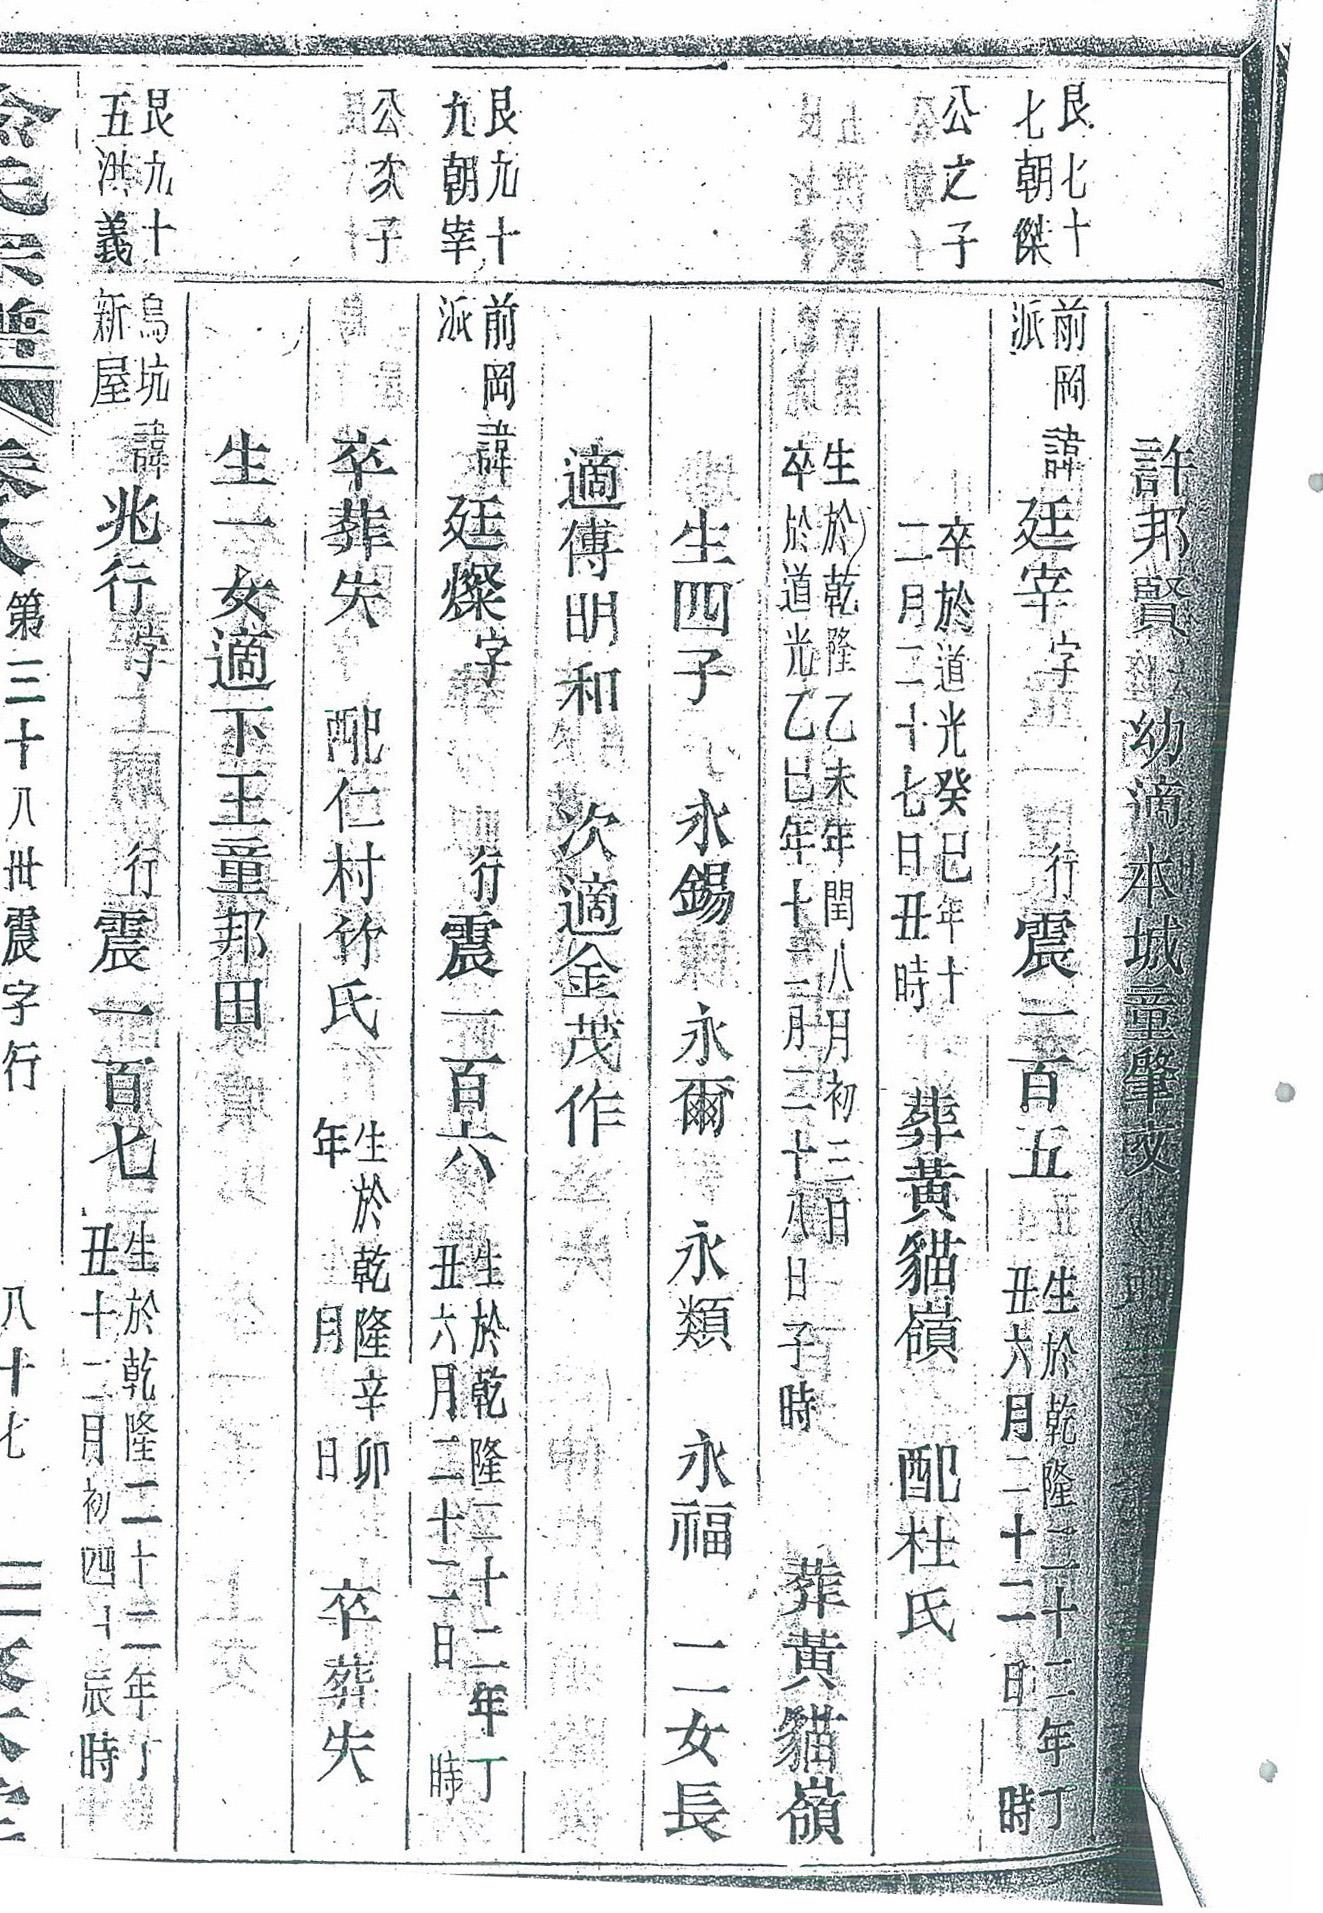 許邦賢 幼適本城童肇文
艮七十
七朝傑
前岡
派
諱廷宰 字 行震一百五
生於乾隆二十二年丁
丑六月二十二日 時
公之子
卒於道光癸巳年十
二月二十七日丑時
葬黃貓嶺 配杜氏
生於乾隆乙未年閏八月初三日
卒於道光乙巳年十二月二十八日子時
葬黃貓嶺
生四子 永錫 永爾 永類 永福 二女長
適傅明和 次適金茂作
艮九十
九朝宰
前岡
派
諱廷燦 字 行震一百六
生於乾隆二十二年丁
丑六月二十二日 時
公次子
卒葬失 配仁村竹氏
生於乾隆辛卯
年 月 日
卒葬失
生一女適下王童邦田
艮九十
五洪義
烏坑
新屋
諱兆行 字 行震一百七
生於乾隆二十二年丁
丑十二月初四日辰時
氏宗譜 卷 第三十八世震字行 八十七